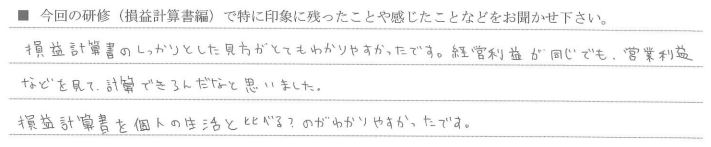 ■ 今回の研修（損益計算書編）で特に印象に残ったことや感じたことなどをお聞かせ下さい。
損益計算書のしっかりとした見方がとてもわかりやすかったです。経営利益が同じでも、営業利益
などを見て、計算できるんだなと思いました。
損益計算書を個人の生活と比べる？のがわかりやすかったです。